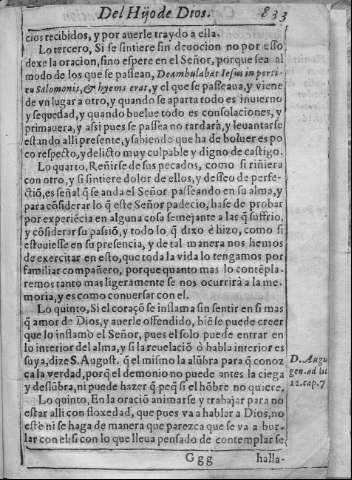 Del Hijo de Dios. 833
cios recibidos, y por auerle traydo a ella.
Lo tercero, Si se sintiere sin deuocion no por esso
dexe la oracion, sino espere en el Señor, porque sea al
modo de los que se passean, Deambulabat Iesus in porti-
cu Salomonis, & hyems erat, y el que se passeaua, y viene
de vn lugar a otro, y quando se aparta todo es inuierno
y sequedad, y quando buelue todo es consolaciones, y
primauera, y assi pues se passea no tardarà, y leuantarse
estando alli presente, y sabiendo que ha de boluer es po
co respecto, y delicto muy culpable y digno de castigo.
Lo quarto, Reñirse de sus pecados, como si riñiera
con otro, y si sintiere dolor de ellos, y desseo de perfe-
ctiõ, es señal q̃ se anda el Señor passeando en su alma, y
para cõsiderar lo q̃ este Señor padecio, hase de probar
por experiẽcia en alguna cosa semejante a las q̃ suffrio,
y cõsiderar su passiõ, y todo lo q̃ dixo è hizo, como si
estouiesse en su presencia, y de tal manera nos hemos
de exercitar en esto, que toda la vida lo tengamos por
familiar compañero, porque quanto mas lo contẽpla-
remos tanto mas ligeramente se nos ocurrirà a la me-
moria, y es como conuersar con el.
Lo quinto, Si el coraçõ se inflama sin sentir en si mas
q̃ amor de Dios, y auerle offendido, biẽ le puede creer
que lo inflamò el Señor, pues el solo puede entrar en
lo interior del alma, y si la reuelaciõ ò habla interior es
suya, dize S. August. q̃ el mismo la alũbra para q̃ conoz
ca la verdad, porq̃ el demonio no puede antes la ciega
y deslũbra, ni puede hazer q̃ peq̃ si el hõbre no quiere.
D. Augu
gen. ad lit
12. cap. 7
Lo quinto, En la oraciõ animarse y trabajar para no
estar alli con floxedad, que pues va a hablar a Dios, no
estè ni se haga de manera que parezca que se va a bur-
lar con el: si con lo que lleua pensado de contemplar se
Ggg halla-